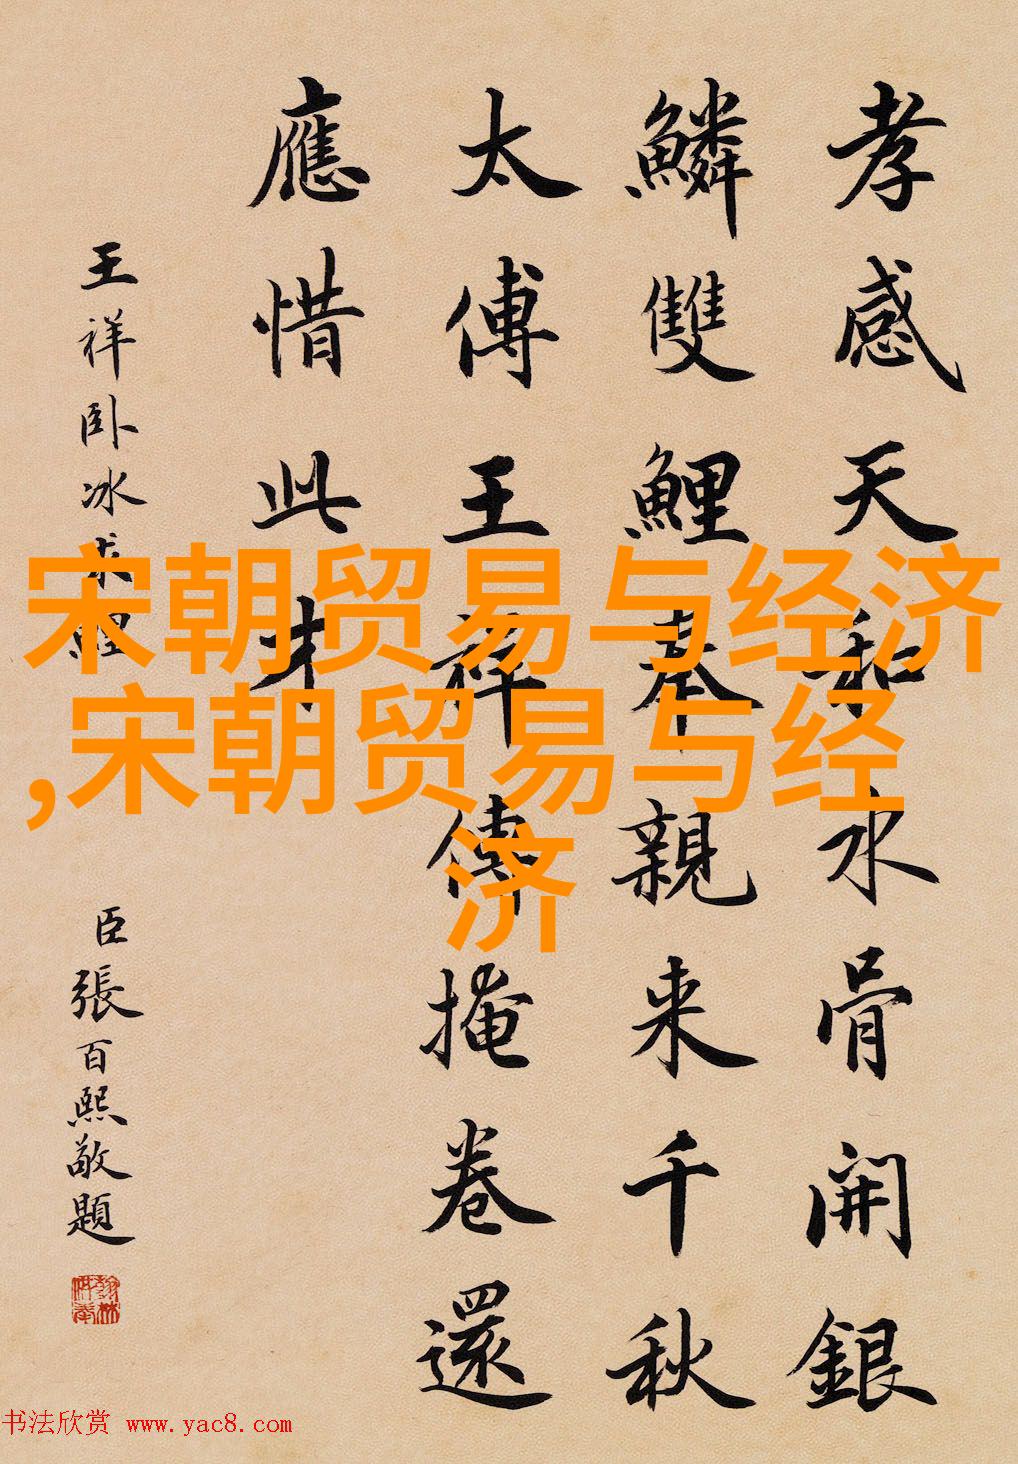 孝感天和水骨開銀
鱗雙鯉奉親来千秋
太傅王祥傳掩卷還
應惜此才
王祥卧冰求鯉
臣張百熙敬題
宋朝贸易与经济
,宋朝贸易与经
济
书法欣赏 www.yac8.com